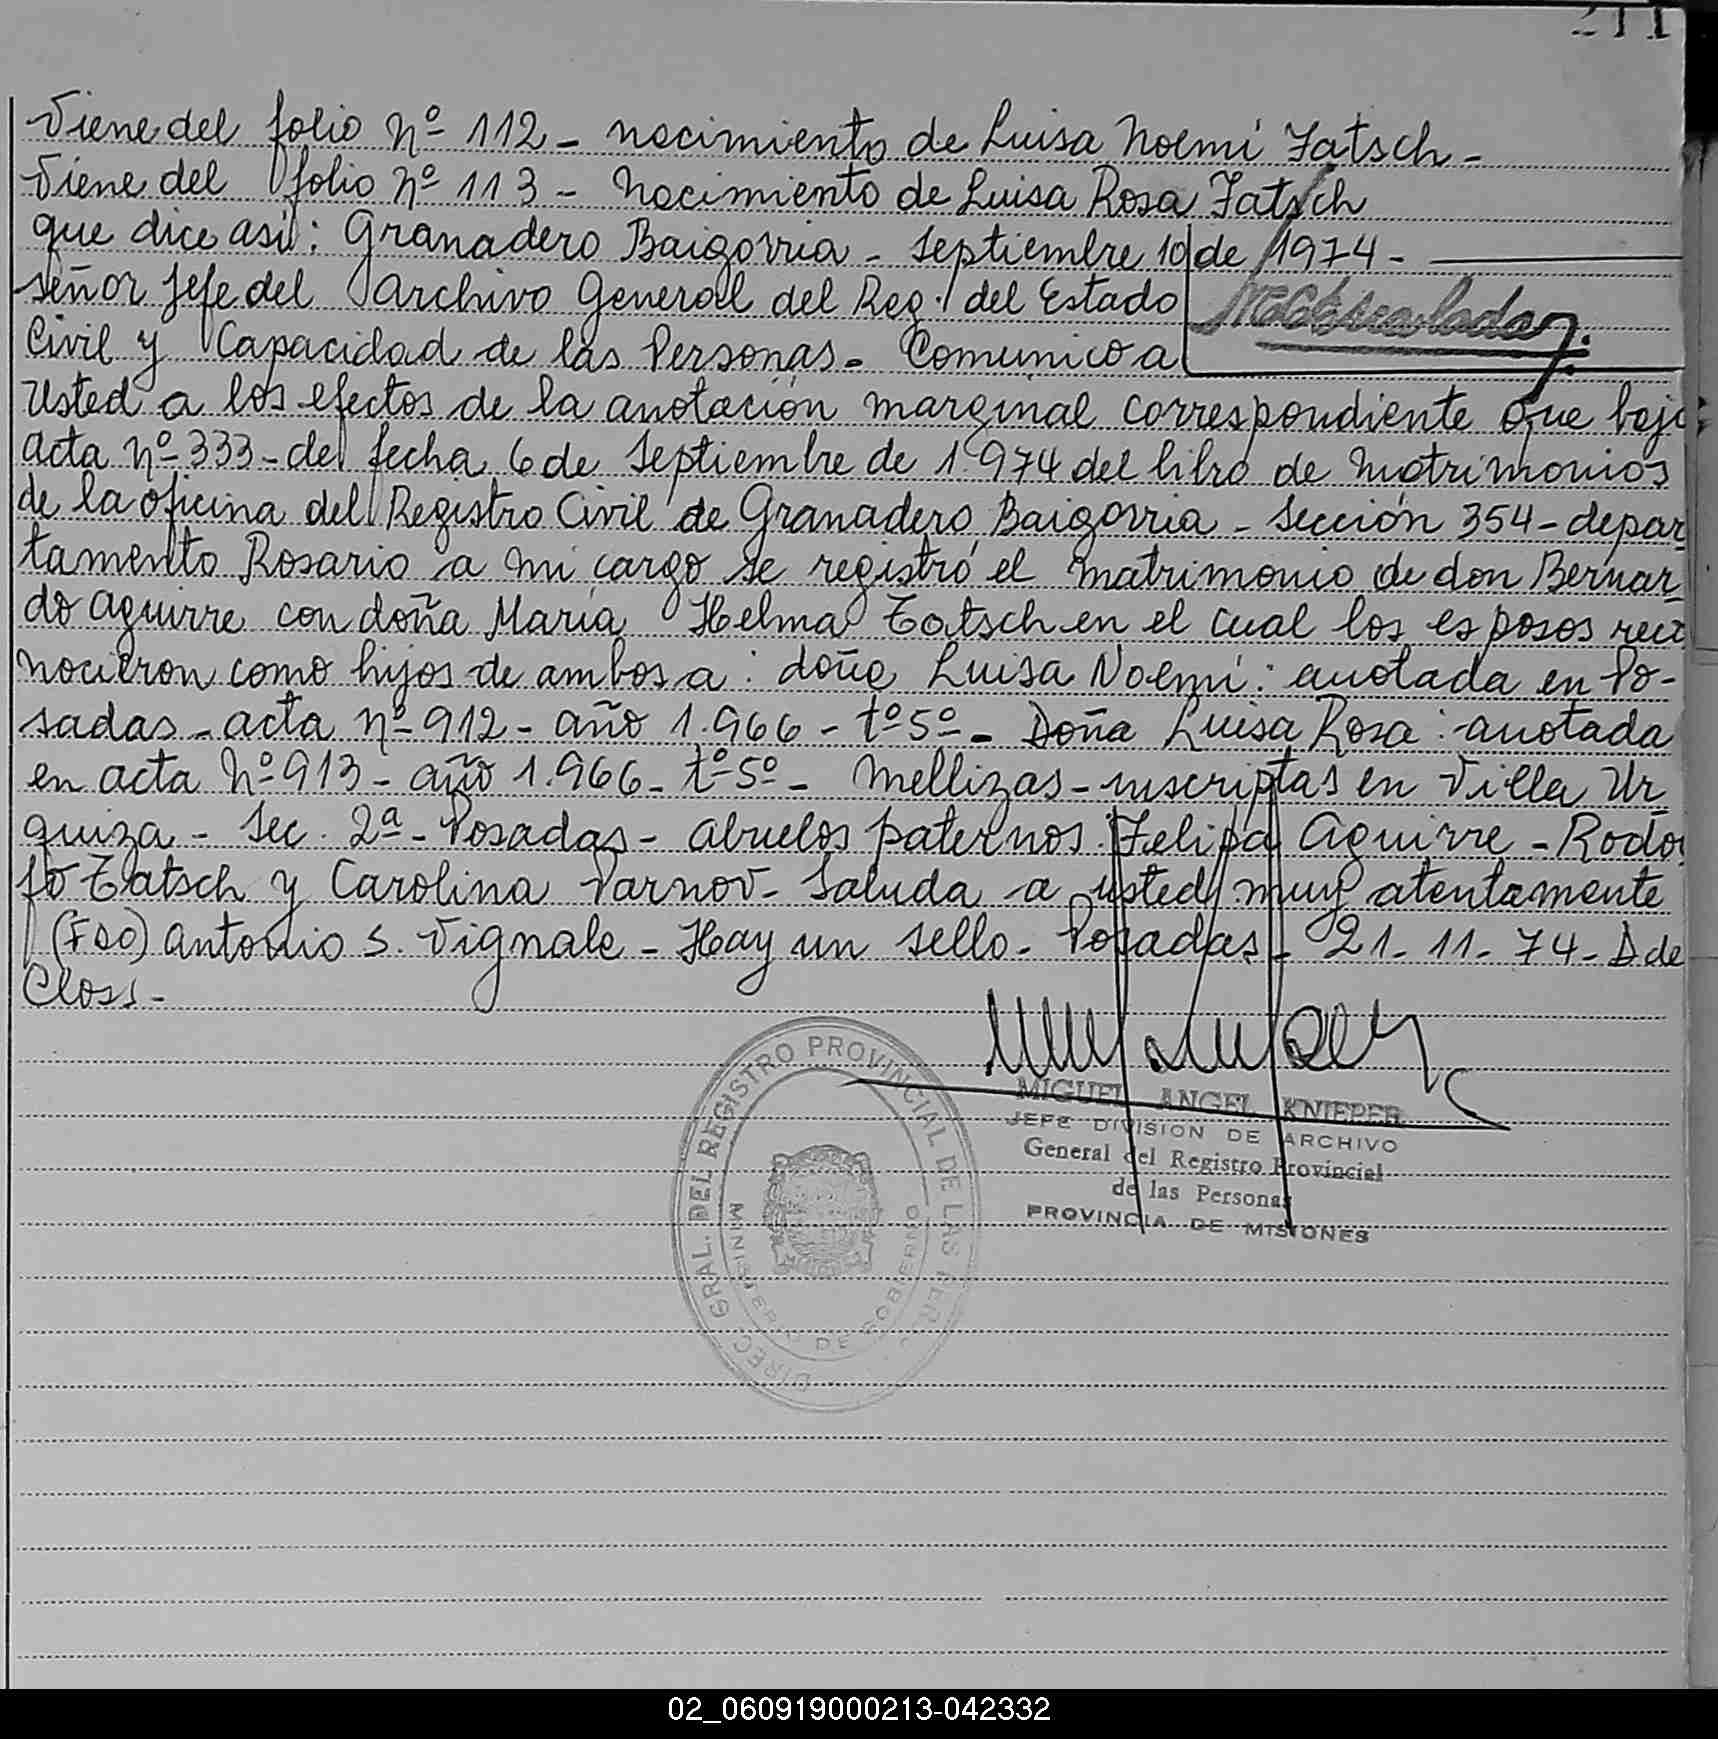 211
Viene del folio Nº 112 - nacimiento de Luisa Noemí Tatsch -
Viene del folio Nº 113 - Nacimiento de Luisa Rosa Tatsch
que dice así: Granadero Baigorria - Septiembre 10 de 1974 -
Señor Jefe del Archivo General del Reg. del Estado
Civil y Capacidad de las Personas - Comunico a
Usted a los efectos de la anotación marginal correspondiente que bajo
acta Nº 333 - del fecha 6 de Septiembre de 1.974 del libro de Matrimonios
de la oficina del Registro Civil de Granadero Baigorria - Sección 354 - depar
tamento Rosario a mi cargo se registró el matrimonio de don Bernar
do Aguirre con doña María Helma Tatsch en el cual los esposos reco
nocieron como hijos de ambos a: doña Luisa Noemí: anotada en Po-
sadas - acta nº 912 - año 1.966 - tº 5º - Doña Luisa Rosa: anotada
en acta Nº 913 - año 1.966 - tº 5º - Mellizas - inscriptas en Villa Ur
quiza - Sec. 2ª - Posadas - abuelos paternos: Felipa Aguirre - Rodol
fo Tatsch y Carolina Parnov - Saluda a usted muy atentamente
(Fdo) Antonio S. Vignale - Hay un sello - Posadas - 21 - 11 - 74 - D de
Closs -
MIGUEL ANGEL KNIEPER
JEFE DIVISION DE ARCHIVO
General del Registro Provincial
de las Personas
PROVINCIA DE MISIONES
DIREC. GRAL. DEL REGISTRO PROVINCIAL DE LAS PER
MINISTERIO DE GOBIERNO
02_060919000213-042332